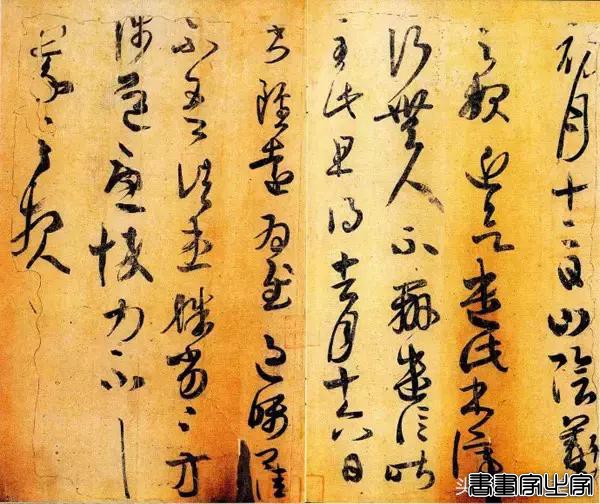 初月十二日山陰羲
之報近欲遣此書停
行無人不辦遣信昨
至此且得去月十六日
書雖遠為慰過囑卿佳
不吾諸患殊勞勞方
涉道憂悴力不具
羲之報
書畫家之家